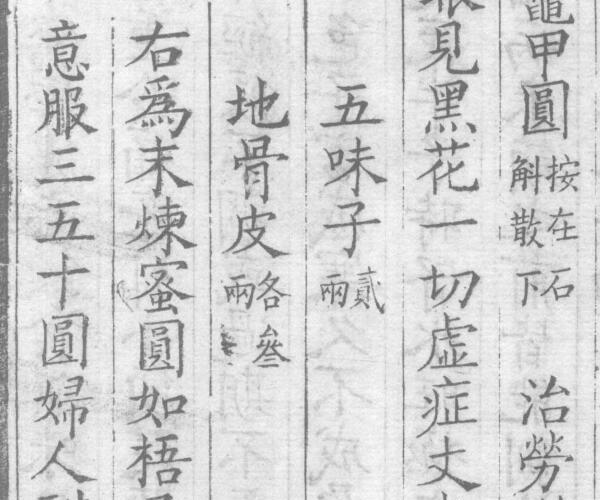 甲圓 按在石斛散下 治勞
見黑花一切虛症丈
五味子 貳兩
地骨皮 各叄兩
右爲末煉蜜圓如梧
意服三五十圓婦人